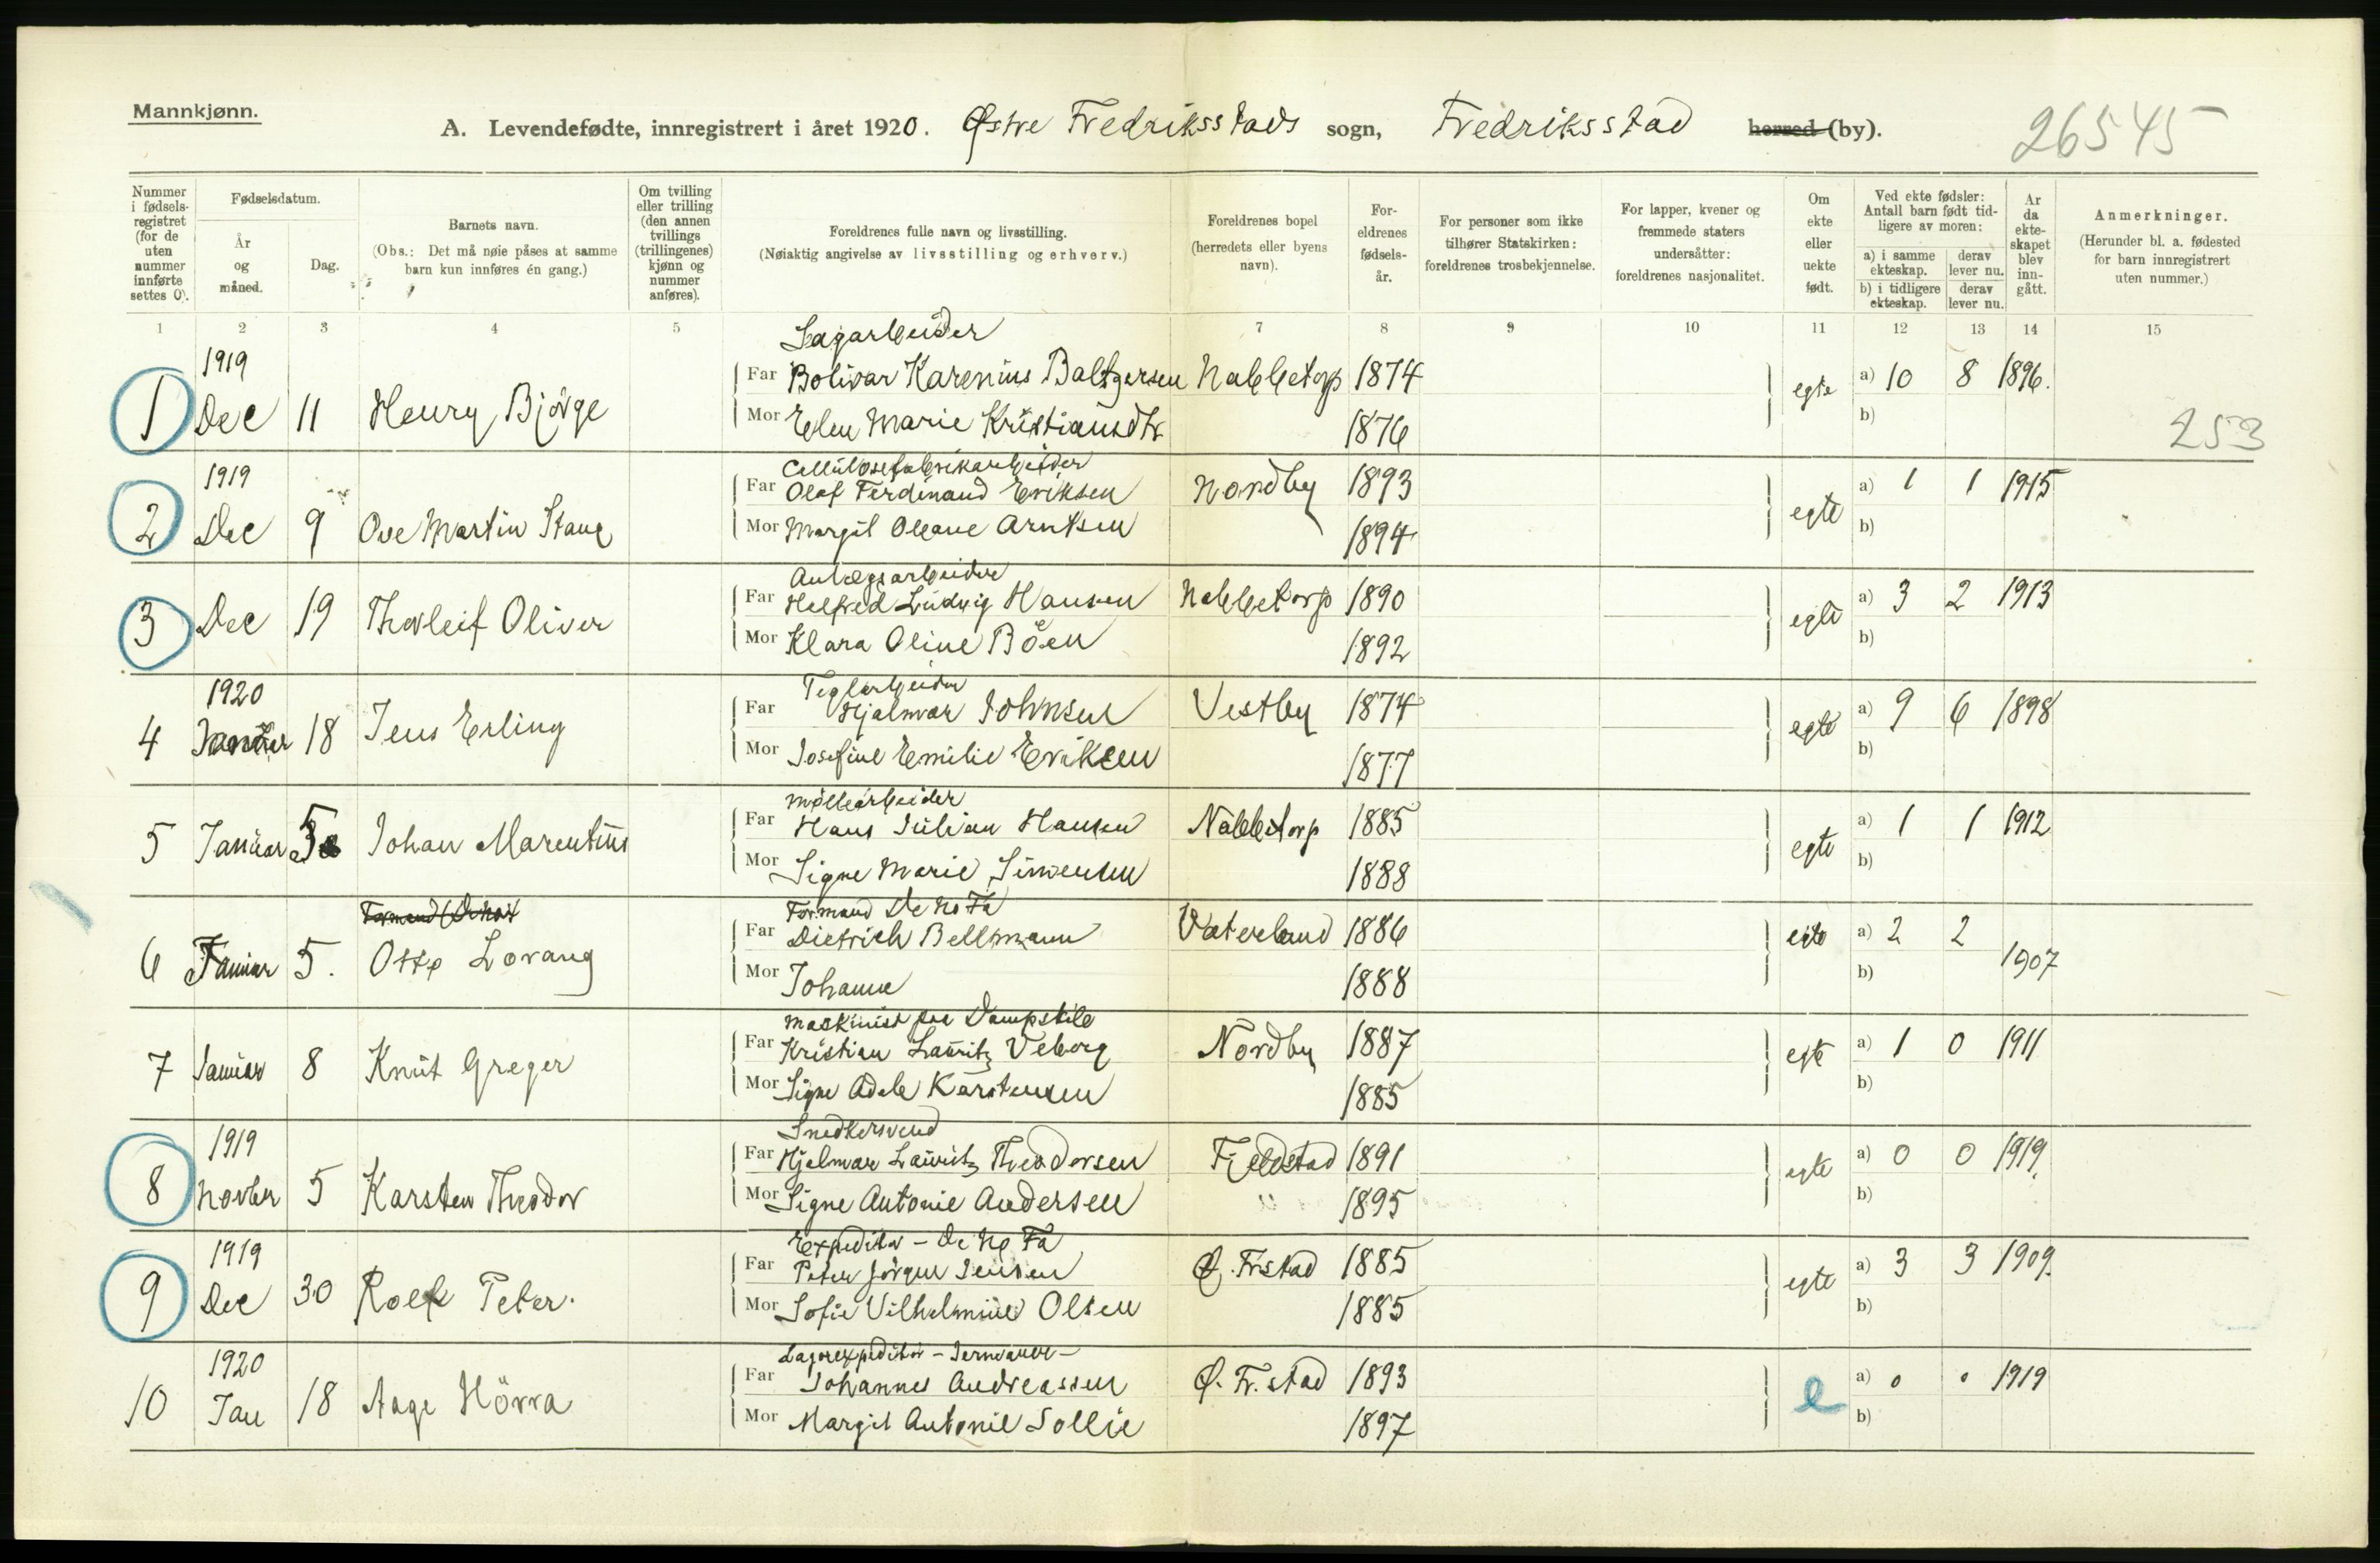 Mannkjønn.
A. Levendefødte, innregistrert i året 1920. Østre Fredriksstads sogn, Fredriksstad herred (by). 26545
Nummer i fødsels-registret (for de uten nummer innførte settes 0).
Fødselsdatum.
År og måned.
Dag.
Barnets navn.
(Obs.: Det må nøie påses at samme barn kun innføres én gang.)
Om tvilling eller trilling (den annen tvillings (trillingenes) kjønn og nummer anføres).
Foreldrenes fulle navn og livsstilling.
(Nøiaktig angivelse av livsstilling og erhverv.)
Foreldrenes bopel (herredets eller byens navn).
For-eldrenes fødsels-år.
For personer som ikke tilhører Statskirken: foreldrenes trosbekjennelse.
For lapper, kvener og fremmede staters undersåtter: foreldrenes nasjonalitet.
Om ekte eller uekte født.
Ved ekte fødsler: Antall barn født tid-ligere av moren:
a) i samme ekteskap. derav lever nu.
b) i tidligere ekteskap. derav lever nu.
År da ekte-skapet blev inn-gått.
Anmerkninger.
(Herunder bl. a. fødested for barn innregistrert uten nummer.)
1 2 3 4 5 7 8 9 10 11 12 13 14 15
Sagarbeider
1919
1 Dec 11 Henry Bjørge Far Bolivar Karenius Baltzersen Nabbetorp 1874 egte a) 10 8 1896.
Mor Elen Marie Kristiansdtr 1876 b)
253
Cellulosefabrikarbeider
1919
2 Dec 9 Ove Martin Stang Far Olaf Ferdinand Eriksen Nordby 1893 egte a) 1 1 1915
Mor Margit Oleane Arntsen 1894 b)
Anlægsarbeider
3 Dec 19 Thorleif Oliver Far Helfred Ludvig Hansen Nabbetorp 1890 egte a) 3 2 1913
Mor Klara Oline Böen 1892 b)
Teglarbeider
1920
4 Januar 18 Jens Erling Far Hjalmar Johnsen Vestby 1874 egte a) 9 6 1898
Mor Josefine Emilie Eriksen 1877 b)
Møllearbeider
5 Januar 5 Johan Marentius Far Hans Julian Hansen Nabbetorp 1885 egte a) 1 1 1912
Mor Signe Marie Simensen 1888 b)
Formand De No Fa
6 Januar 5. Otto Lorang Far Dietrich Bellmann Vaterland 1886 egte a) 2 2 1907
Mor Johanne 1888 b)
Maskinist paa Dampskib
7 Januar 8 Knut Greger Far Kristian Lauritz Veborg Nordby 1887 egte a) 1 0 1911
Mor Signe Adele Karstensen 1885 b)
Snedkersvend
1919
8 Novber 5 Karsten Theodor Far Hjalmar Lauritz Theodorsen Fjeldstad 1891 egte a) 0 0 1919.
Mor Signe Antonie Andersen " 1895 b)
Expeditør - De No Fa
1919
9 Dec 30 Rolf Peter. Far Peter Jørgen Jensen Ø. Fr.stad 1885 egte a) 3 3 1909.
Mor Sofie Vilhelmine Olsen 1885 b)
Lagerexpeditør - Jernvarer -
1920
10 Jan 18 Aage Hörra Far Johannes Andreassen Ø. Fr. stad 1893 e a) 0 0 1919
Mor Margit Antonie Sollie 1897 b)